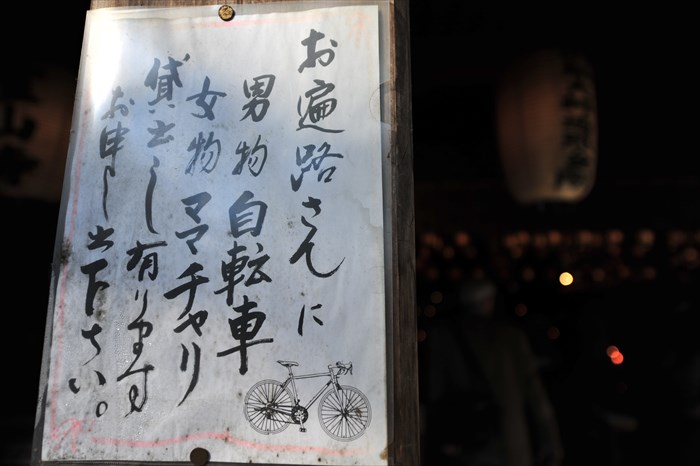 お遍路さんに
男物 自転車
女物 ママチャリ
貸出し有ります
お申し出下さい。